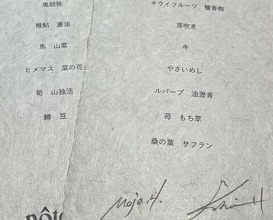 鬼胡桃
稚鮎 醤油
馬 山菜
ヒメマス 菜の花
筍 山独活
鱒 豆
キウイフルーツ 檀香梅
芽吹き
牛
やさいめし
ルバーブ 油瀝青
苺 もち草
桑の葉 サフラン
Mojo.H.